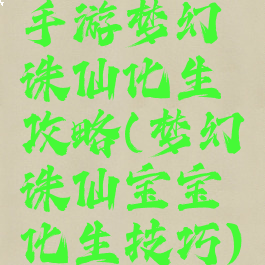 手游梦幻
诛仙化生
攻略(梦幻
诛仙宝宝
化生技巧)